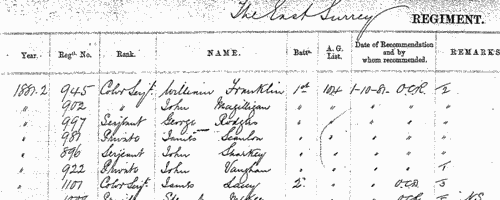 The East Surrey REGIMENT.
Year. Regtl. No. Rank. NAME. Battn. A. G. List. Date of Recommendation and by whom recommended. REMARKS
1881-2 945 Color Serjt. William Franklin 1st 104 1-10-81 O.C.R. 2
" 902 " John Magilligan " " " " "
" 997 Serjeant George Rodgers " " " "
" 987 Private James Scanlon " " " "
" 896 Serjeant John Sharkey " " " "
" 922 Private John Vaughan " " " " 1
" 1101 Color Serjt. James Lacey 2 " " O.C.R. 3